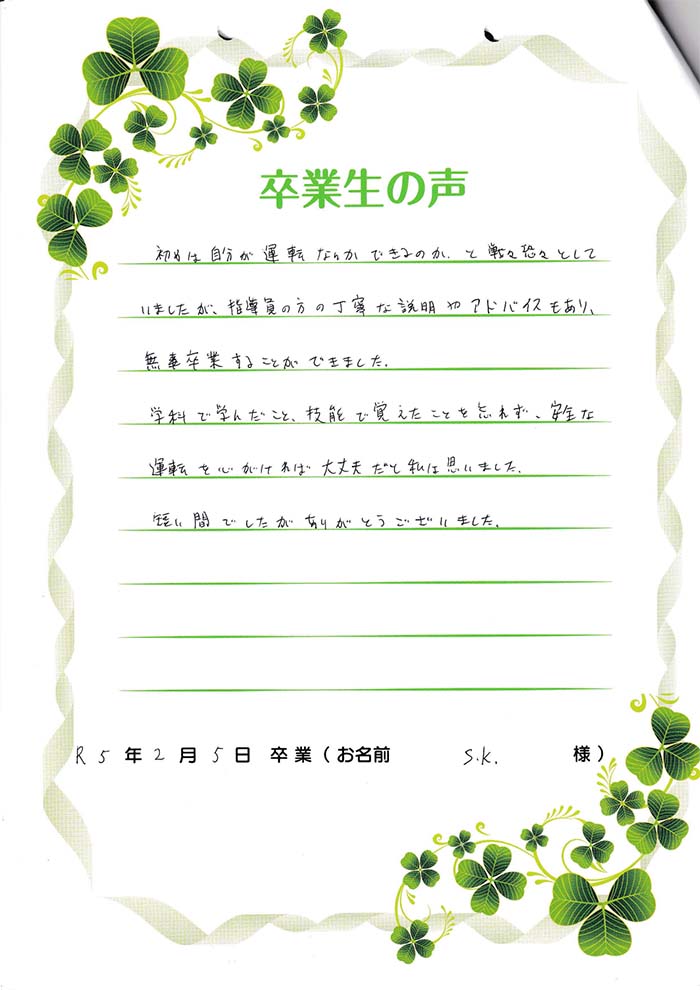 卒業生の声
初めは自分が運転なんかできるのか、と戦々恐々として
いましたが、指導員の方の丁寧な説明やアドバイスもあり、
無事卒業することができました。
学科で学んだこと、技能で覚えたことを忘れず、安全な
運転を心がければ大丈夫だと私は思いました。
短い間でしたがありがとうございました。
R5年2月5日 卒業(お名前 S.K. 様)